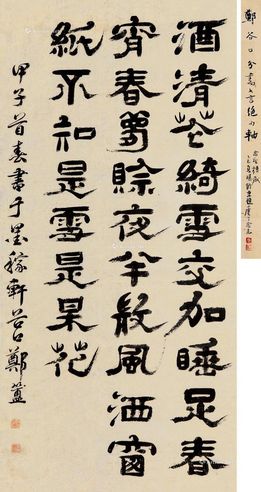 鄭谷口分書七言絕句軸
酒清花綺雪交加睡足春
宵春夢賒夜半散風洒窗
紙不知是雪是某花
甲子首春書于墨稼軒谷口鄭簠